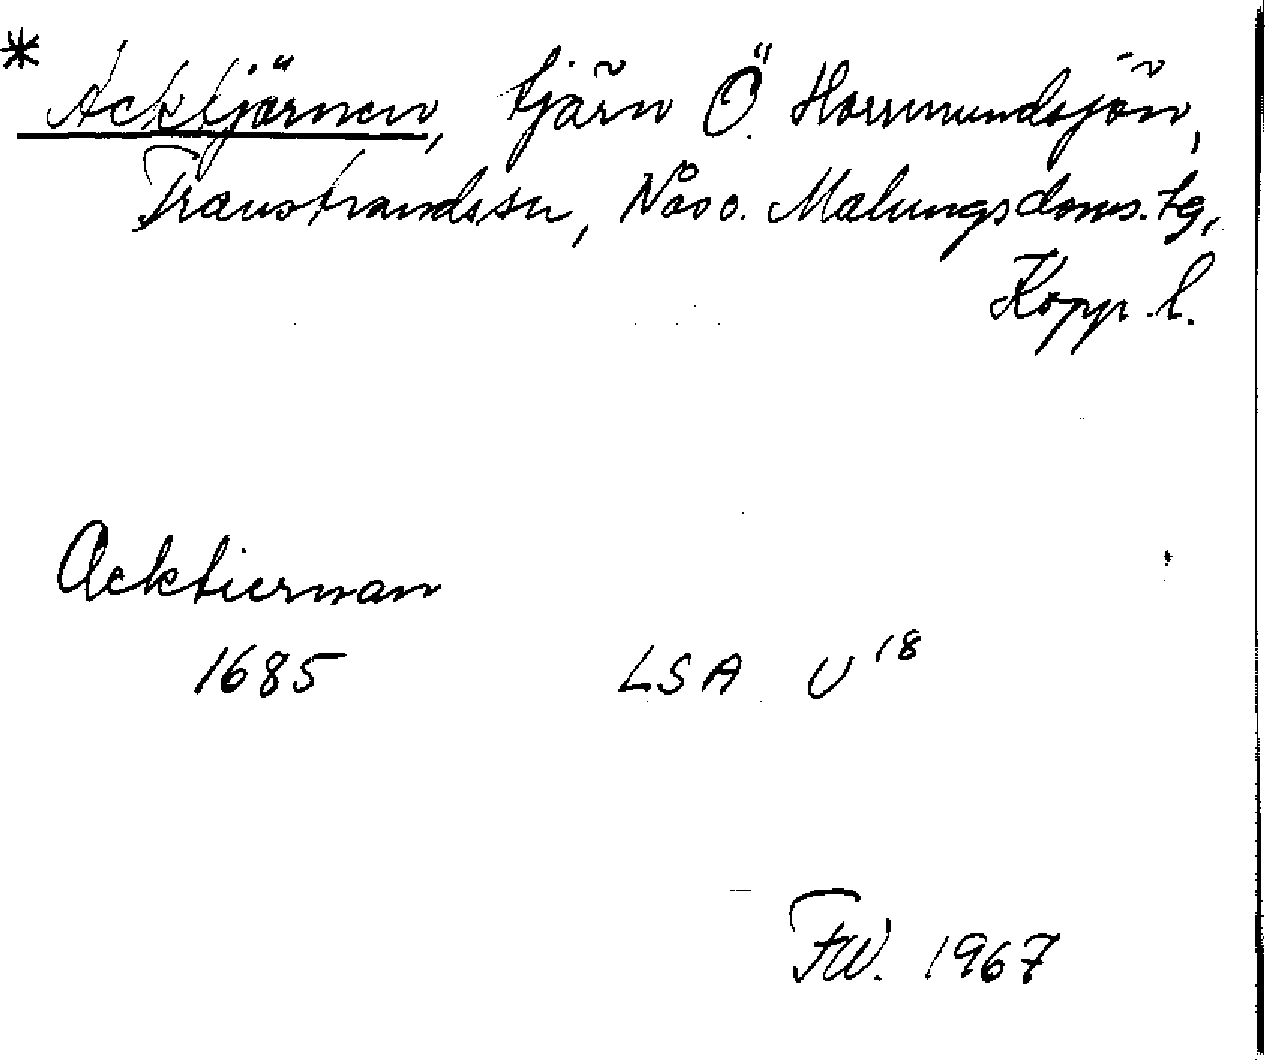 * Acktjärnen, tjärn Ö. Horrmundsjön,
Transtrands sn, Nås o. Malungs doms. tg,
Kopp. l.
Acktiernan
1685 LSA U 18
FW. 1967